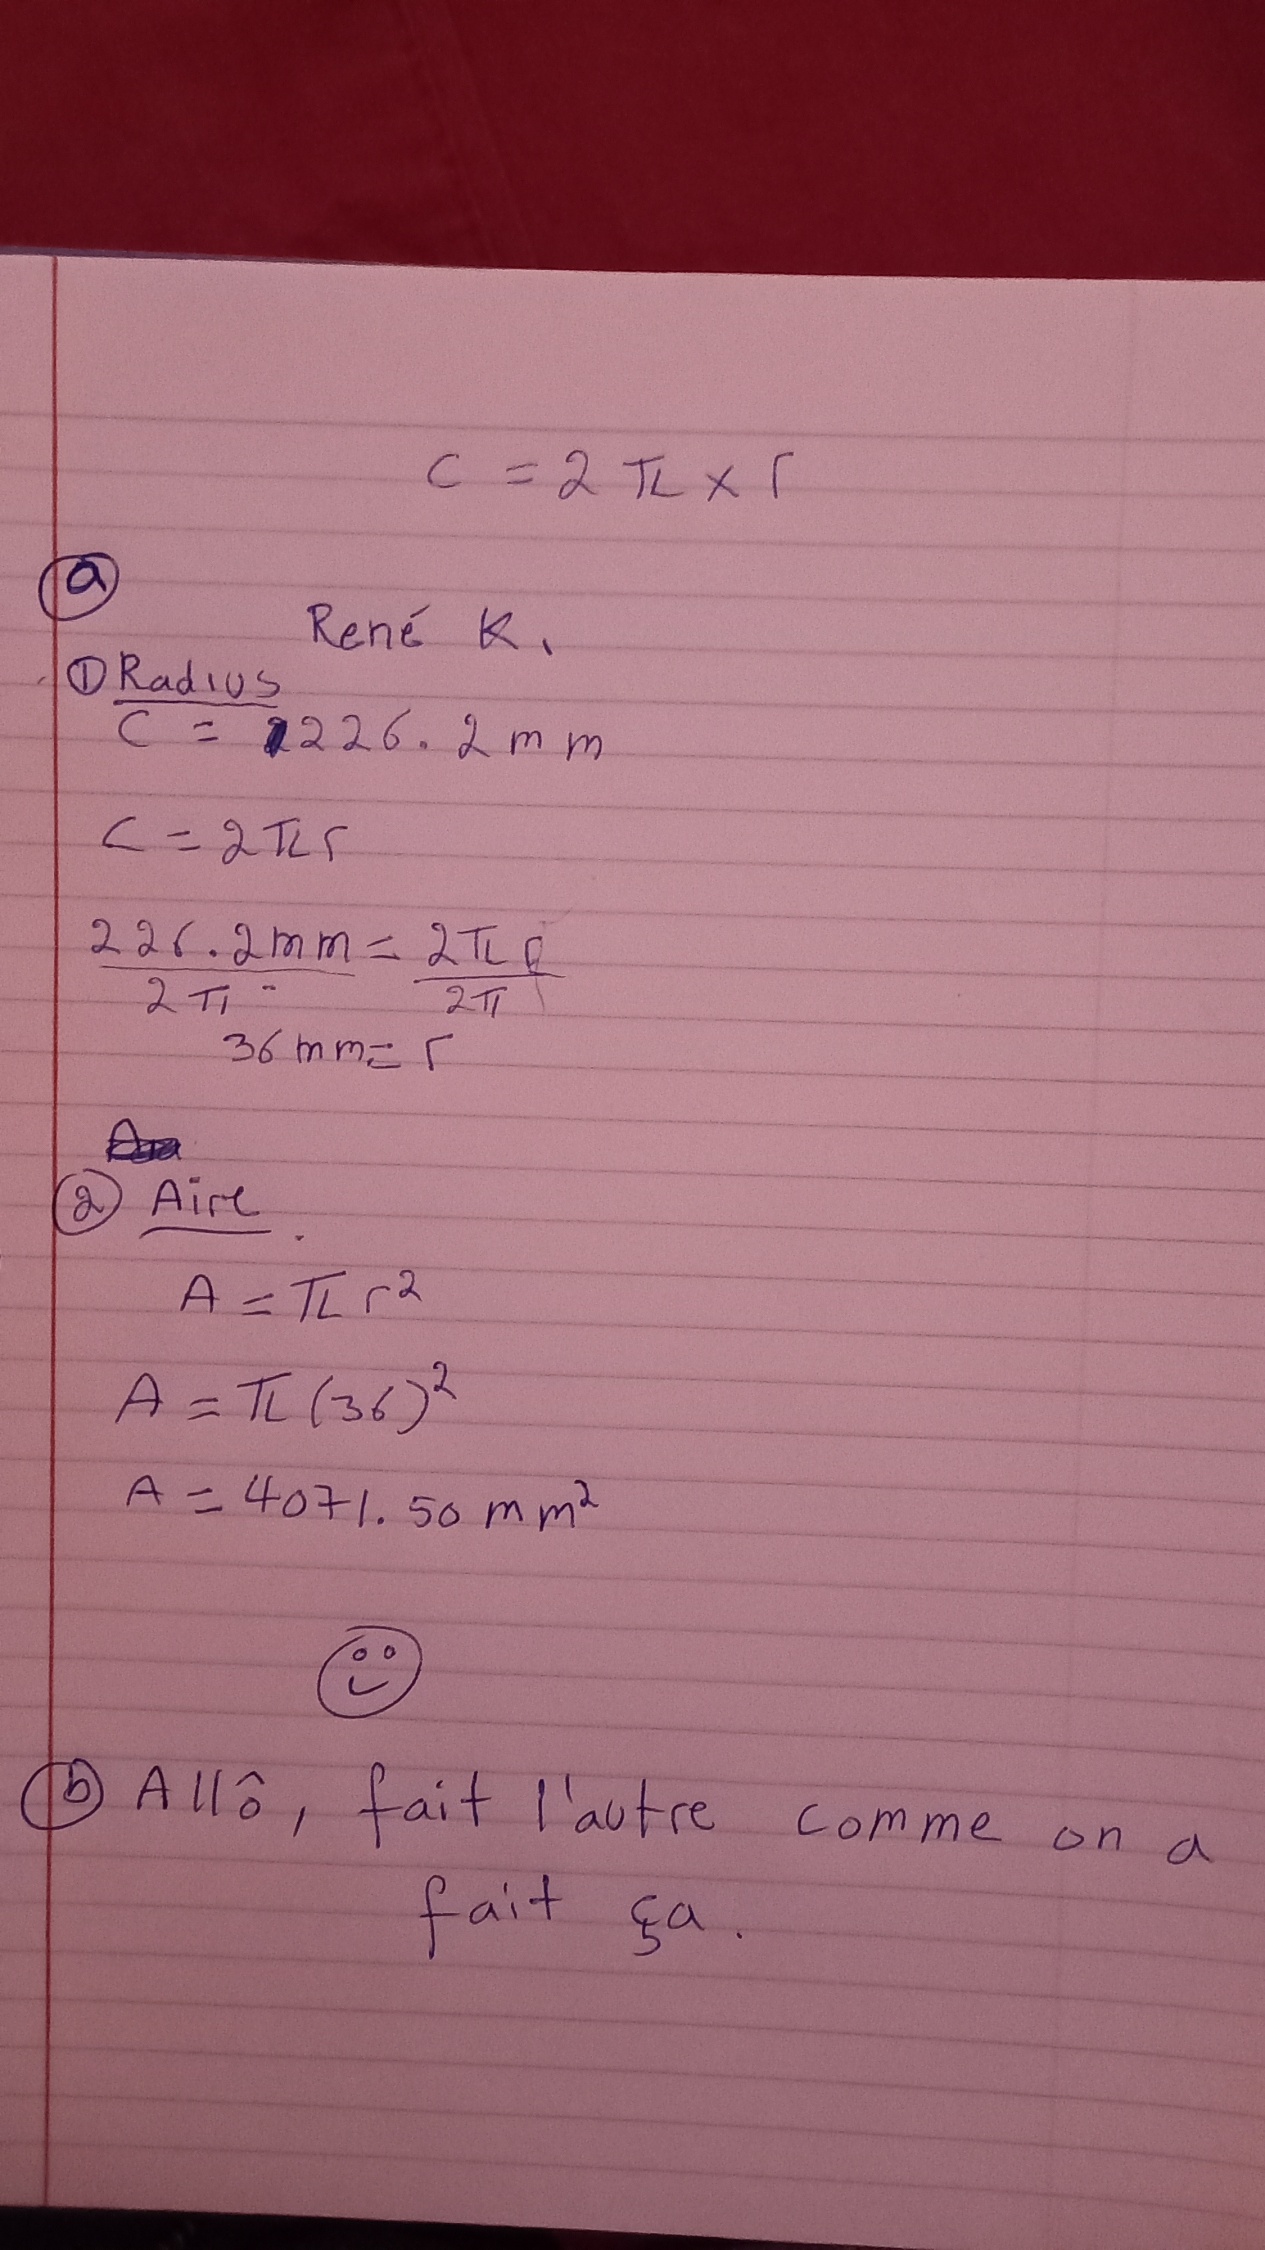 C = 2 π x r
a
René K.
① Radius
C = 226.2 mm
C = 2πr
226.2mm = 2πr
2π 2π
36 mm = r
② Aire
A = πr²
A = π(36)²
A = 4071.50 mm²
b Allô, fait l'autre comme on a
fait ça.